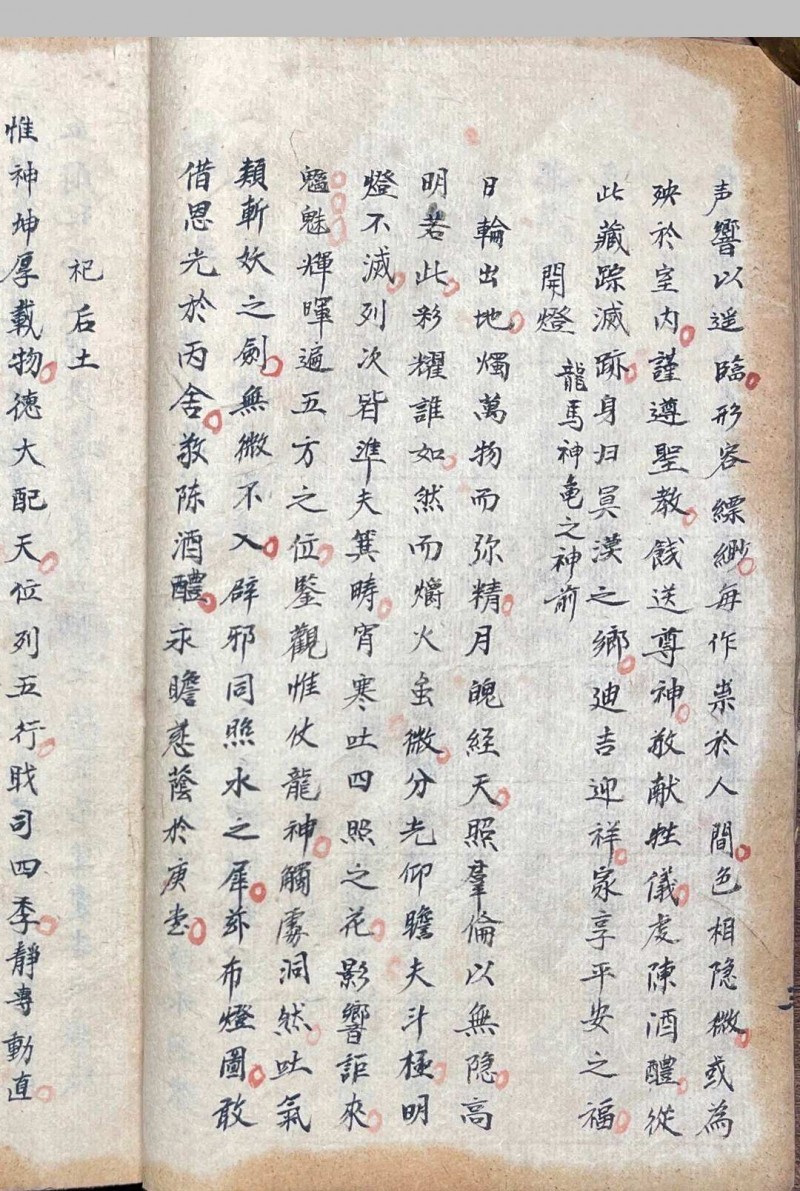 声響以遥臨形容縹緲每作祟於人間色相隐微或為
殃於室内謹遵聖教餞送尊神敬献牲儀虔陳酒醴從
此藏踪滅跡身归冥漠之鄉廸吉迎祥家享平安之福
開燈 龍馬神亀之神前
日輪出地燭萬物而弥精月魄経天照羣倫以無隐高
明若此彩耀誰如然而爝火虽微分光仰瞻夫斗極明
燈不滅列次皆準夫箕畴宵寒吐四照之花影響詎來
魑魅輝暉遍五方之位鑒觀惟仗龍神觸處洞然吐氣
類斬妖之劍無微不入辟邪同照水之犀兹布燈圖敢
借恩光於丙舍敬陈酒醴永瞻慈蔭於庚堂
祀后土
惟神坤厚載物德大配天位列五行戝司四季静專動直